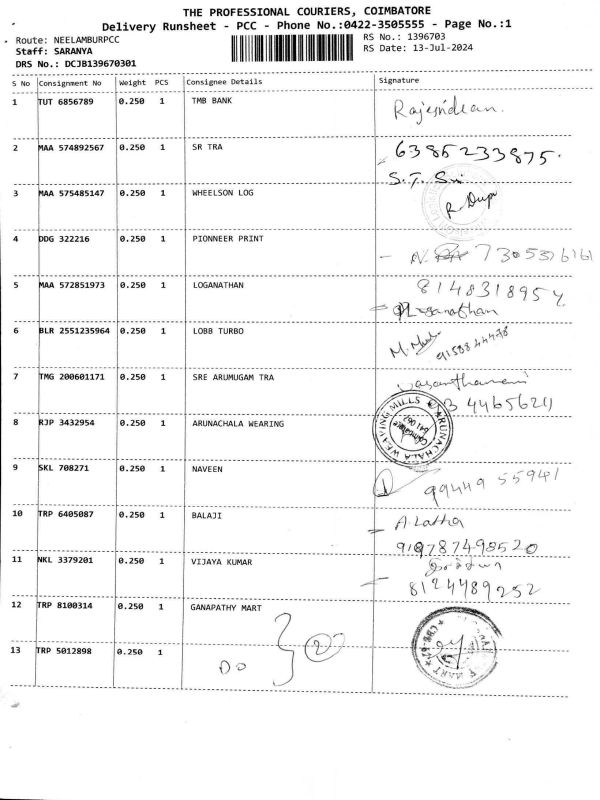 THE PROFESSIONAL COURIERS, COIMBATORE
Delivery Runsheet - PCC - Phone No.:0422-3505555 - Page No.:1
Route: NEELAMBURPCC
Staff: SARANYA
DRS No.: DCJB139670301
RS No.: 1396703
RS Date: 13-Jul-2024
S No Consignment No Weight PCS Consignee Details Signature
1 TUT 6856789 0.250 1 TMB BANK
2 MAA 574892567 0.250 1 SR TRA 6385233875.
S.T. Sri
3 MAA 575485147 0.250 1 WHEELSON LOG
4 DDG 322216 0.250 1 PIONNEER PRINT
5 MAA 572851973 0.250 1 LOGANATHAN
Loganathan
6 BLR 2551235964 0.250 1 LOBB TURBO
7 TMG 200601171 0.250 1 SRE ARUMUGAM TRA
Vasanthamani
8 RJP 3432954 0.250 1 ARUNACHALA WEARING
ARUNACHALA WEAVING MILLS
9 SKL 708271 0.250 1 NAVEEN 99449 55941
10 TRP 6405087 0.250 1 BALAJI A. Latha
919787498520
11 NKL 3379201 0.250 1 VIJAYA KUMAR
8124489252
12 TRP 8100314 0.250 1 GANAPATHY MART
13 TRP 5012898 0.250 1 DO 2